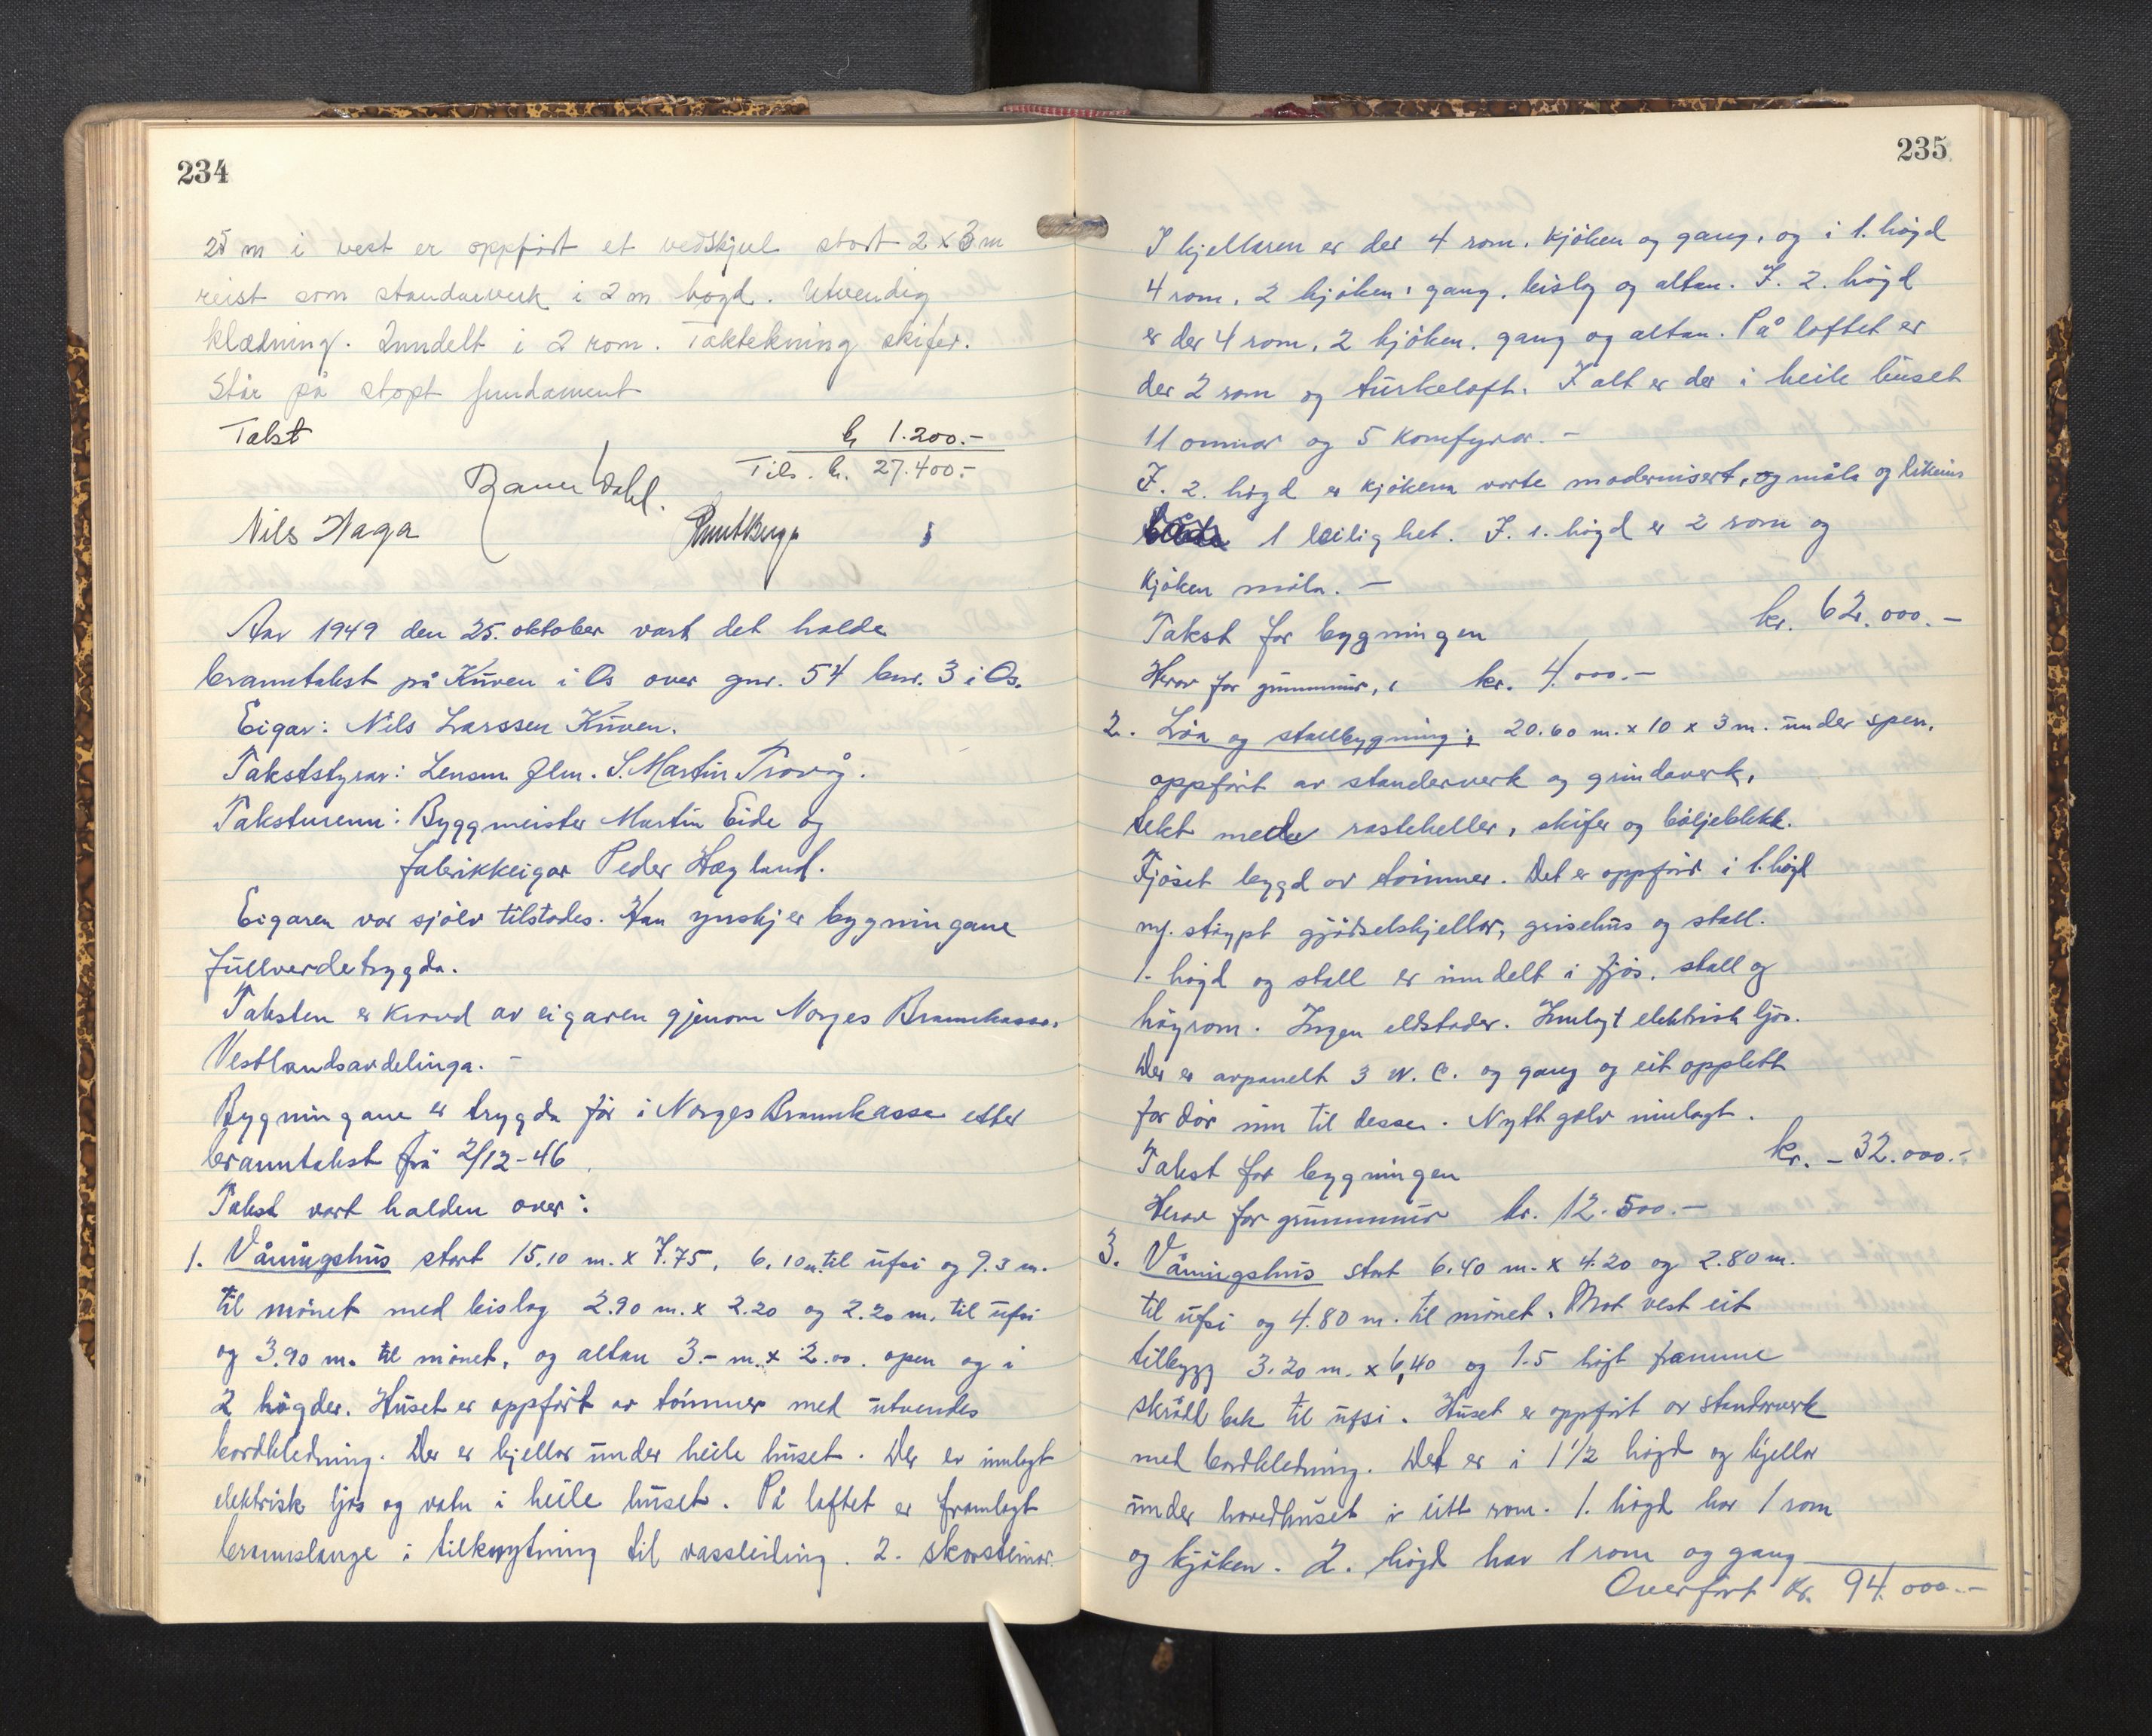 234
25 m i vest er oppført et vedskjul stort 2 x 3 m
reist som standarverk i 2 m høgd. Utvendig
klædning. Inndelt i 2 rom. Taktekning skifer.
Står på støpt fundament
Takst kr 1.200.-
Tils. kr. 27.400.-
Dahl.
Nils Haga Knut Berge
Aar 1949 den 25. oktober vart det halde
branntakst på Kuven i Os over gnr. 54 bnr. 3 i Os.
Eigar: Nils Larssen Kuven.
Takststyrar: Lensm. flm. S. Martin Trovåg.
Takstmenn: Byggmeister Martin Eide og
fabrikkeigar Peder Hægland.
Eigaren var sjølv tilstades. Han ynskjer bygningane
fullverdetrygda.
Taksten er kravd av eigaren gjenom Norges Brannkasse,
Vestlandsavdelinga. -
Bygningane er trygda før i Norges Brannkasse etter
branntakst frå 2/12-46
Takst vart halden over:
1. Våningshus stort 15,10 m. x 7.75, 6,10 m. til ufsi og 9.3 m.
til mønet med bislag 2.90 m. x 2.20 og 2.20 m. til ufsi
og 3.90 m. til mønet, og altan 3.- m. x 2.00. open og i
2 høgder. Huset er oppført av tømmer med utvendes
bordkledning. Der er kjellar under heile huset. Der er innlagt
elektrisk ljos og vatn i heile huset. På loftet er framlagt
brannslange i tilknytning til vassleidning. 2. skorsteinar.
235
I kjellaren er der 4 rom, kjøken og gang, og i 1. høgd
4 rom, 2 kjøken, gang, bislag og altan. I. 2. høgd
er der 4 rom, 2 kjøken, gang og altan. På loftet er
der 2 rom og turkeloft. I alt er der i heile huset
11 omnar og 5 komfyrar. -
I. 2. høgd er kjøkena vorte modernisert, og måla og likeins
1 leilighet. I. 1. høgd er 2 rom og
kjøken måla. -
Takst for bygningen kr. 62.000.-
Herav for grunnmur, kr. 4.000.-
2. Løa og stallbygning; 20.60 m. x 10 x 3 m. under spen,
oppført av standerverk og grindaverk,
tekt med rasteheller, skifer og bøljeblekk.
Fjøset bygd av tømmer. Det er oppførd i 1. høgd
ny. støypt gjødselskjellar, grisehus og stall.
1. høgd og stall er inndelt i fjøs, stall og
høyrom. Ingen eldstader. Innlagt elektrisk ljos.
Der er avpanelt 3 W. C. og gang og eit opplett
for dør inn til desse. Nytt golv innlagt.
Takst for bygningen kr. - 32.000.-
Herav for grunnmur kr. 12.500.-
3. Våningshus stort 6.40 m. x 4.20 og 2.80 m.
til ufsi og 4.80 m. til mønet. Mot vest eit
tilbygg 3.20 m. x 6,40 og 1.5 høgt framme
skrått bak til ufsi. Huset er oppført av standarverk
med bordkledning. Det er i 1 1/2 høgd og kjellar
under hovedhuset i eitt rom. 1. høgd har 1 rom
og kjøken. 2. høgd har 1 rom og gang
Overført kr. 94.000.-